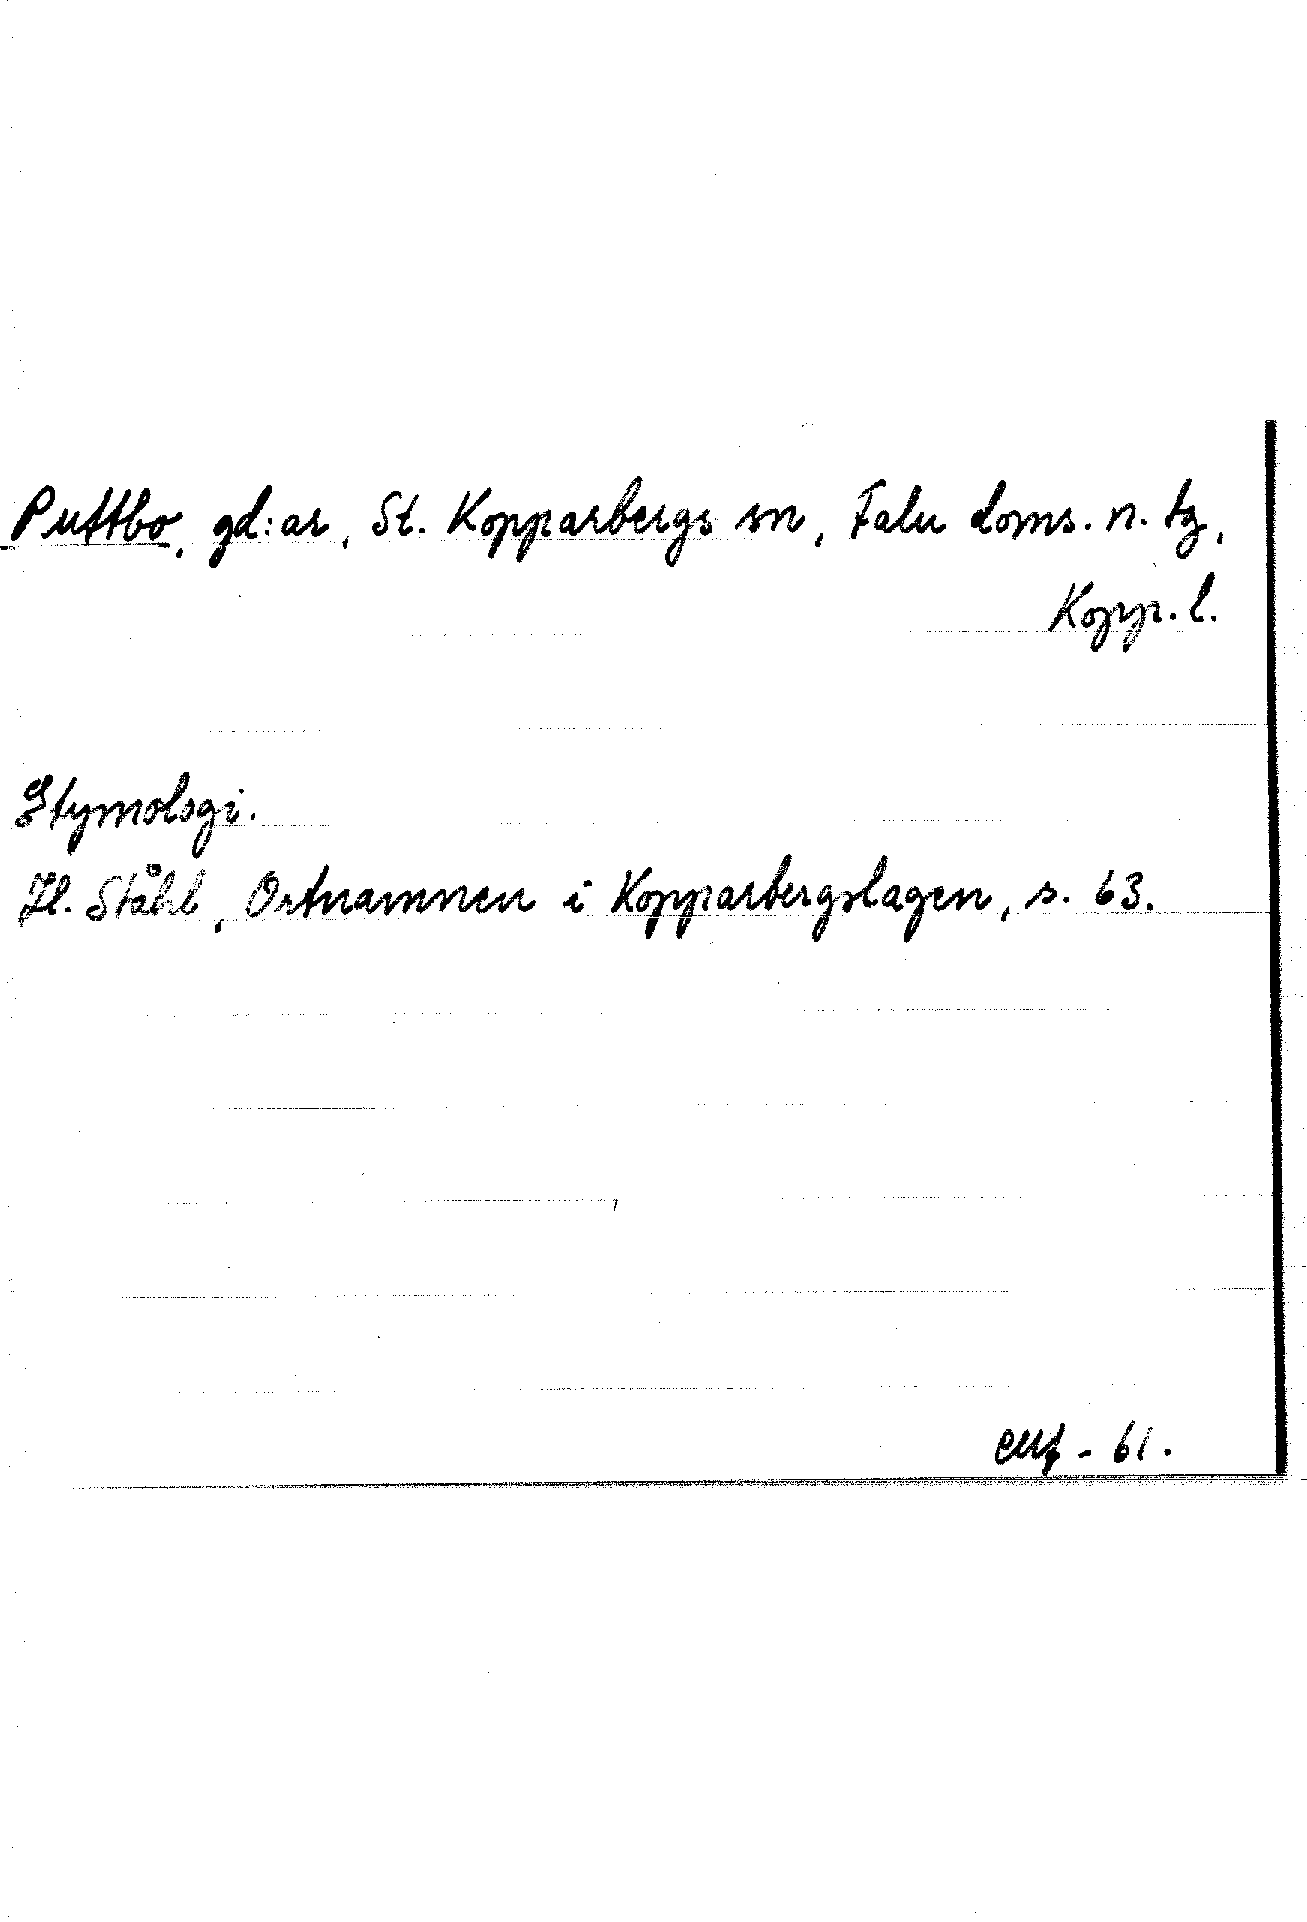 Puttbo, gd:ar, St. Kopparbergs sn, Falu doms. n. tg,
Kopp. l.
Etymologi.
H. Ståhl, Ortnamnen i Kopparbergslagen, s. 63.
- 61.